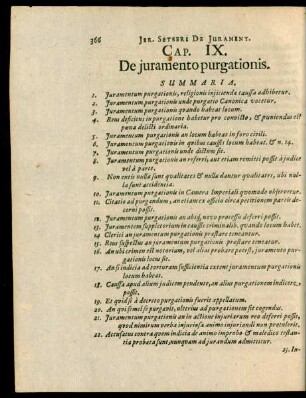 366 JER. SETSERI DE JURAMENT.
CAP. IX.
De juramento purgationis.
SUMMARIA.
1. Juramentum purgationis, religionis injiciendæ caussa adhibetur.
2. Juramentum purgationis unde purgatio Canonica vocetur.
3. Juramentum purgationis quando habeat locum.
4. Reus deficiens in purgatione habetur pro convicto, & puniendus est
pœna delicti ordinaria.
5. Juramentum purgationis an locum habeat in foro civili.
6. Juramentum purgationis in quibus caussis locum habeat. & n. 14.
7. Juramentum purgationis unde dictum sit.
8. Juramentum purgationis an referri, aut etiam remitti possit à judice
vel à parte.
9. Non entis nullæ sunt qualitates & nullæ dantur qualitates, ubi nul-
la sunt accidentia.
10. Juramentum purgationis in Camera Imperiali quomodo observetur.
11. Citatio ad purgandum, an etiam ex officio citra petitionem partis de-
cerni possit.
12. Juramentum purgationis an absq; novo processu deferri possit.
13. Juramentum suppletorium in caussis criminalib. quando locum habet.
14. Clerici an juramentum purgationis præstare teneantur.
15. Reus suspectus an juramentum purgationis præstare teneatur.
16. An ubi crimen est notorium, vel alias probare potest, juramento pur-
gationis locus sit.
17. An si indicia ad torturam sufficientia extent juramentum purgationis
locum habeat.
18. Caussa apud alium judicem pendente, an alius purgationem indicere
possit.
19. Et quid si à decreto purgationis fuerit appellatum.
20. An qui semel se purgavit, ulterius ad purgationem sit cogendus.
21. Juramentum purgationis an in actione injuriarum reo deferri possit,
quod nimirum verba injuriosa animo injuriandi non protulerit.
22. Accusatus contra quem indicia de animo improbo & maledico testan-
tia probata sunt, nunquam ad jurandum admittitur.
23. In-